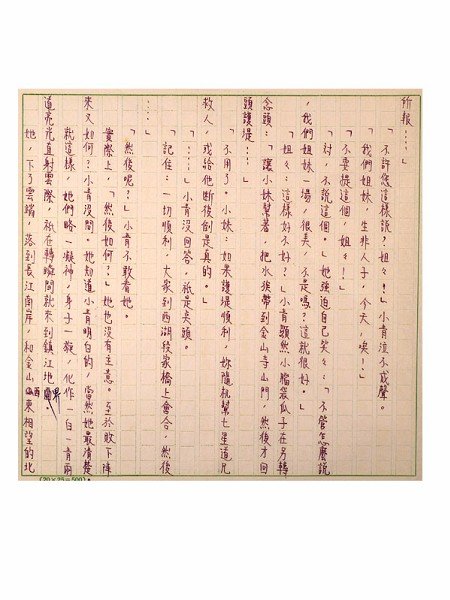 所報……」
「不許您這樣說?姐々!」小青泣不成聲。
「我們姐妹,生非人子,今天,唉!」
「不要提這個,姐々!」
「對,不說這個。」她強迫自己笑々:「不管怎麽說
,我們姐妹一場,很美,不是嗎?這就很好。」
「姐々:這樣好不好?」小青顯然小腦袋瓜子在另轉
念頭:「讓小妹幫著,把水族帶到金山寺山門,然後才回
頭護堤……」
「不用了。小妹:如果護堤順利,妳隨杭幫七星道兄
救人,或給他斷後倒是真的。」
「……」小青沒回答,祇是丟頭。
「記住:一切順利,大家到西湖段家橋上會合,然後
……」
「然後呢?」小青不敢看她。
實際上,「然後如何?」她也沒有主意。至於敗下陣
來又如何?小青沒問。她知道小青明白的,當然她最清楚
就這樣 她們略一凝神,身子一旋,化作一白一青兩
道亮光直射雲際,祇在轉瞬間就來到鎮江地界
她,下了雲端,落到長江南岸,和金山西東相望的北
(20×25=500)